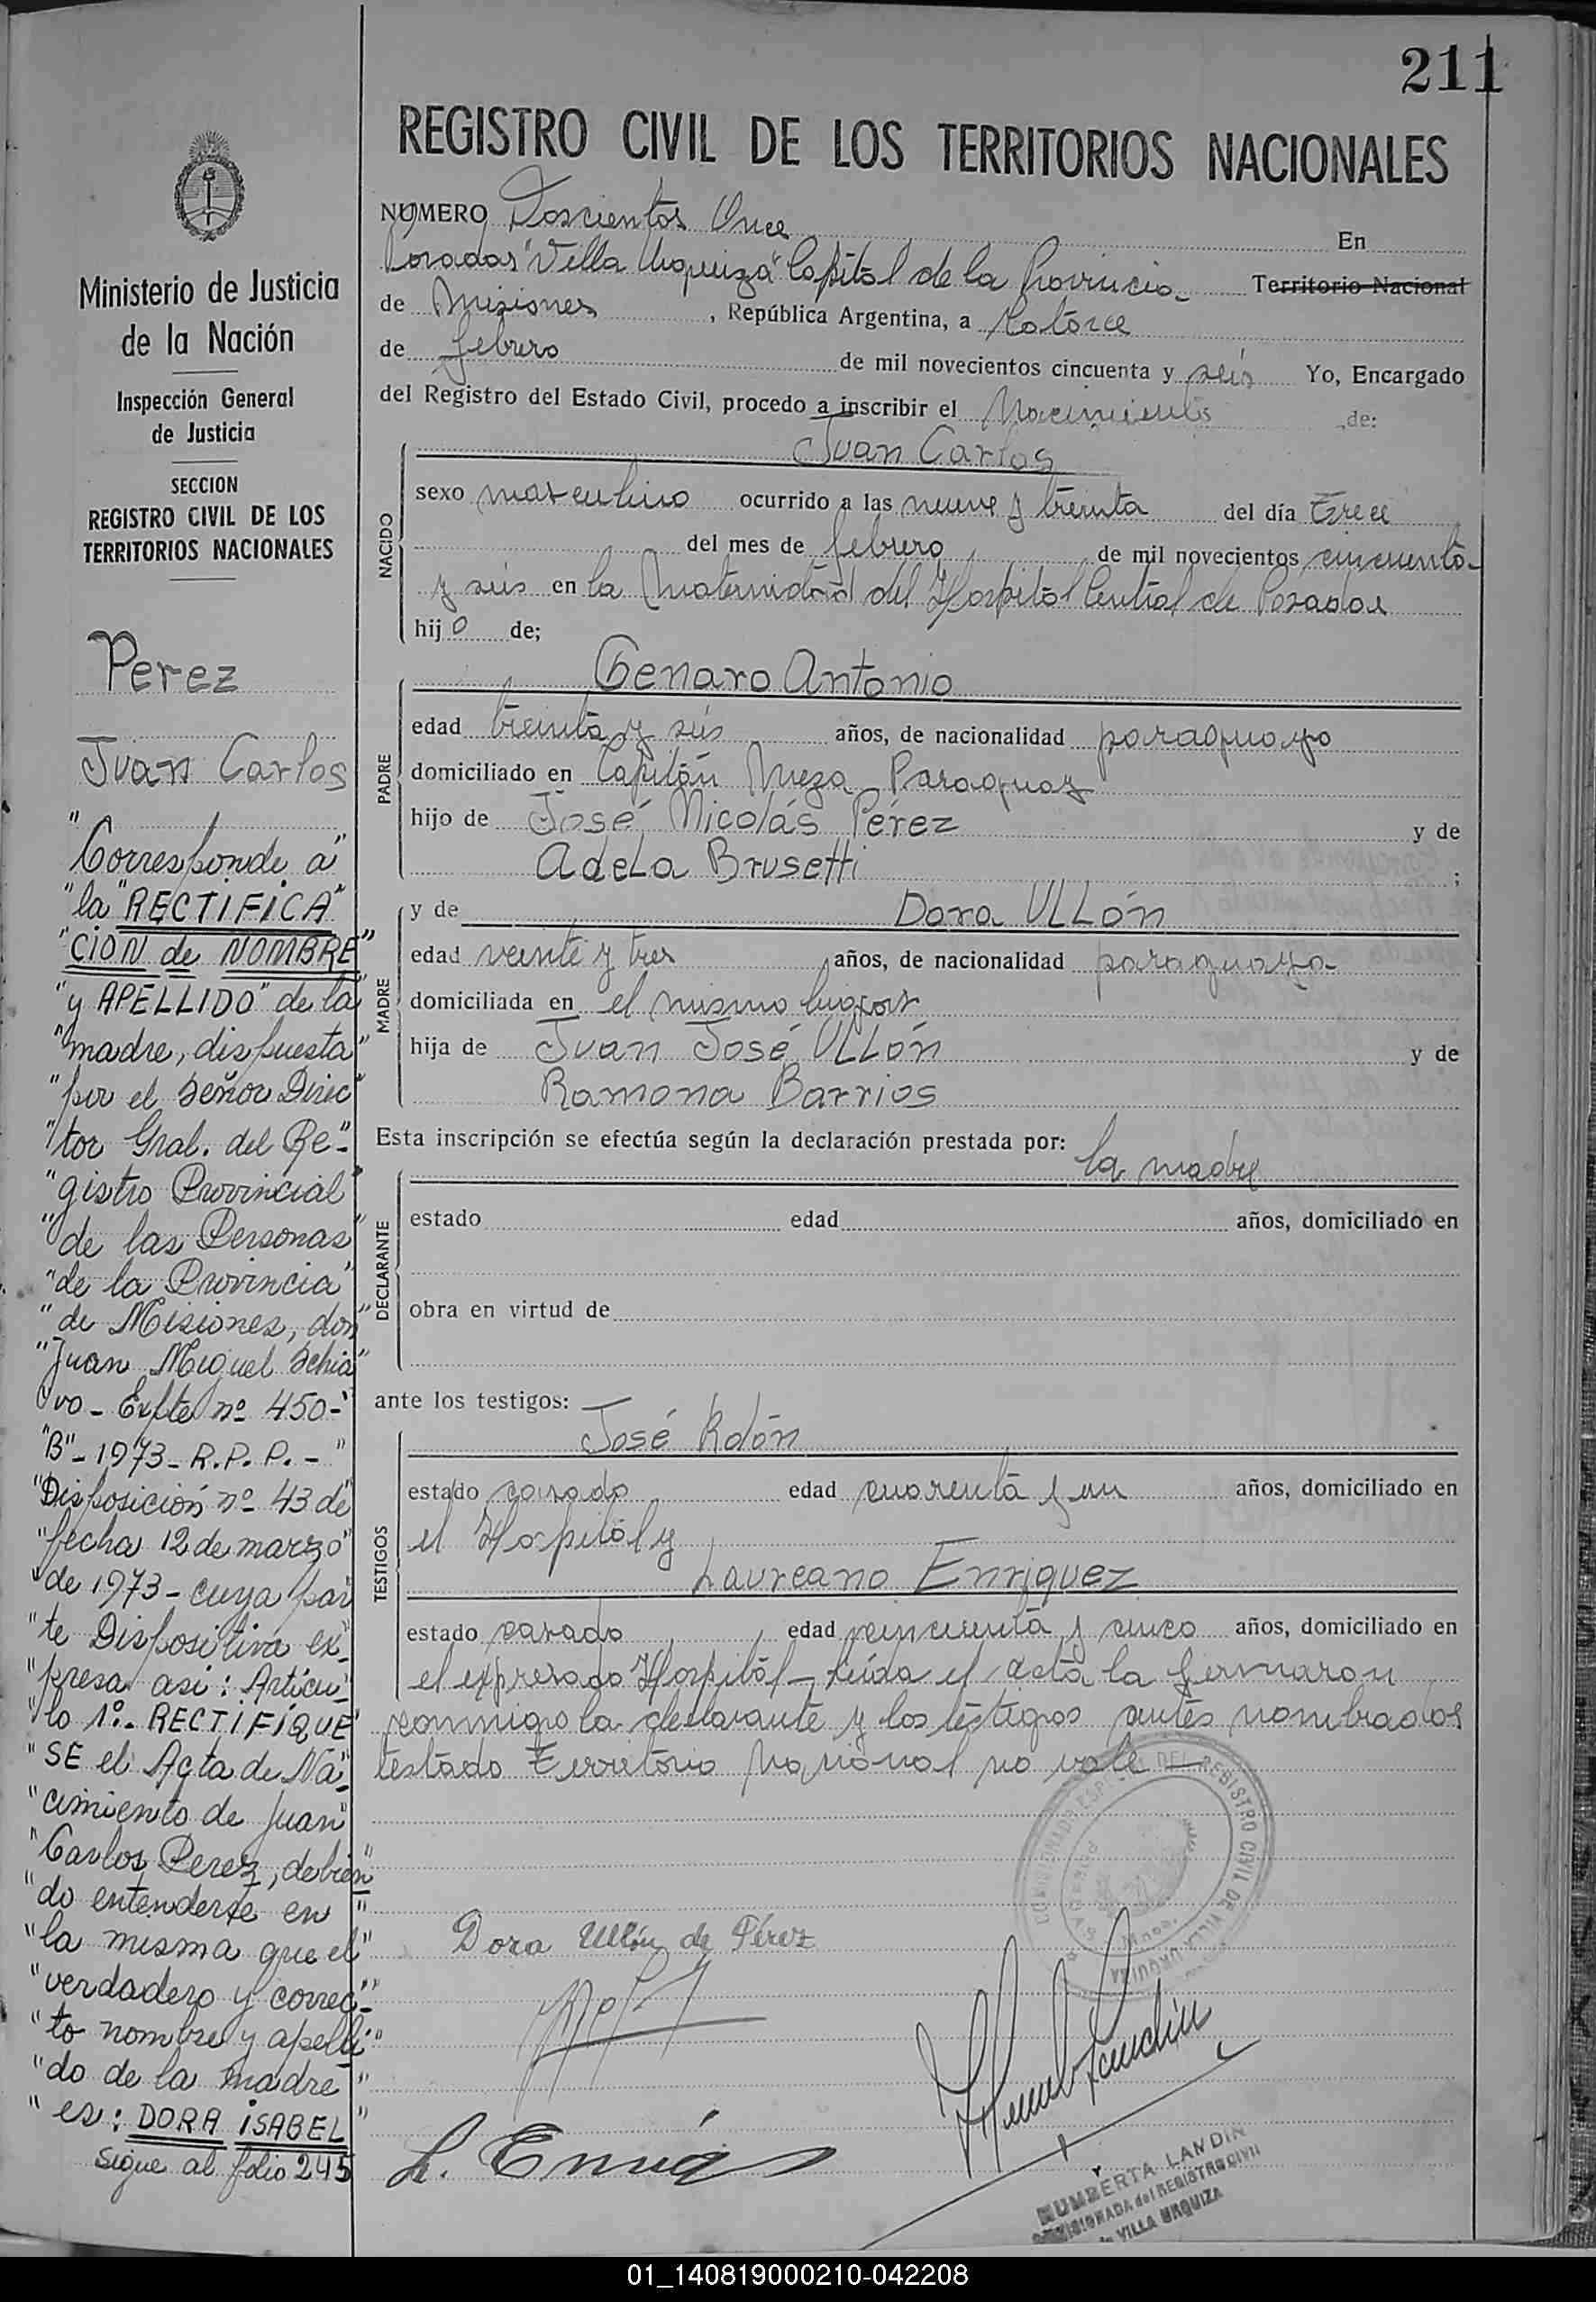 211
REGISTRO CIVIL DE LOS TERRITORIOS NACIONALES
NUMERO Doscientos Once En
Posadas "Villa Urquiza" Capital de la Provincia Territorio Nacional
de Misiones, República Argentina, a Catorce
de febrero de mil novecientos cincuenta y seis Yo, Encargado
del Registro del Estado Civil, procedo a inscribir el Nacimiento de:
NACIDO
Juan Carlos
sexo masculino ocurrido a las nueve y treinta del día trece
del mes de febrero de mil novecientos cincuenta
y seis en la Maternidad del Hospital Central de Posadas
hijo de;
PADRE
Genaro Antonio
edad treinta y seis años, de nacionalidad paraguayo
domiciliado en Capitán Meza Paraguay
hijo de José Nicolás Pérez y de
Adela Brusetti ;
MADRE
y de Dora ULLón
edad veinte y tres años, de nacionalidad paraguaya
domiciliada en el mismo lugar
hija de Juan José ULLón y de
Ramona Barrios
Esta inscripción se efectúa según la declaración prestada por: la madre
DECLARANTE
estado edad años, domiciliado en
obra en virtud de
ante los testigos:
TESTIGOS
José Rolón
estado casado edad cuarenta y un años, domiciliado en
el Hospital y
Laureano Enriquez
estado casado edad cincuenta y cinco años, domiciliado en
el expresado Hospital - Leída el acta la firmaron
conmigo la declarante y los testigos antes nombrados
testado Territorio Nacional no vale
Dora Ullón de Pérez
L. Enriq
DEL REGISTRO CIVIL DE VILLA URQUIZA
HUMBERTA LANDIN
COMISIONADA del REGISTRO CIVIL
de VILLA URQUIZA
Ministerio de Justicia
de la Nación
Inspección General
de Justicia
SECCION
REGISTRO CIVIL DE LOS
TERRITORIOS NACIONALES
Perez
Juan Carlos
"Corresponde a"
"la "RECTIFICA"
"CION de NOMBRE"
"y APELLIDO" de la
"madre, dispuesta"
"por el Señor Direc"
"tor Gral. del Re-"
"gistro Provincial"
"de las Personas"
"de la Provincia"
"de Misiones, don"
"Juan Miguel Schia"
vo - Expte nº 450-"
"B" - 1973 - R.P.P. - "
"Disposición nº 43 de
"fecha 12 de marzo"
"de 1973 - cuya par
"te Dispositiva ex-
"presa asi: Artícu-
"lo 1º.- RECTIFÍQUE"
"SE el Acta de Na-"
"cimiento de Juan"
"Carlos Perez, debien"
"do entenderse en "
"la misma que el"
"verdadero y correc-"
"to nombre y apelli-"
"do de la madre "
"es: DORA iSABEL"
sigue al folio 245
01_140819000210-042208